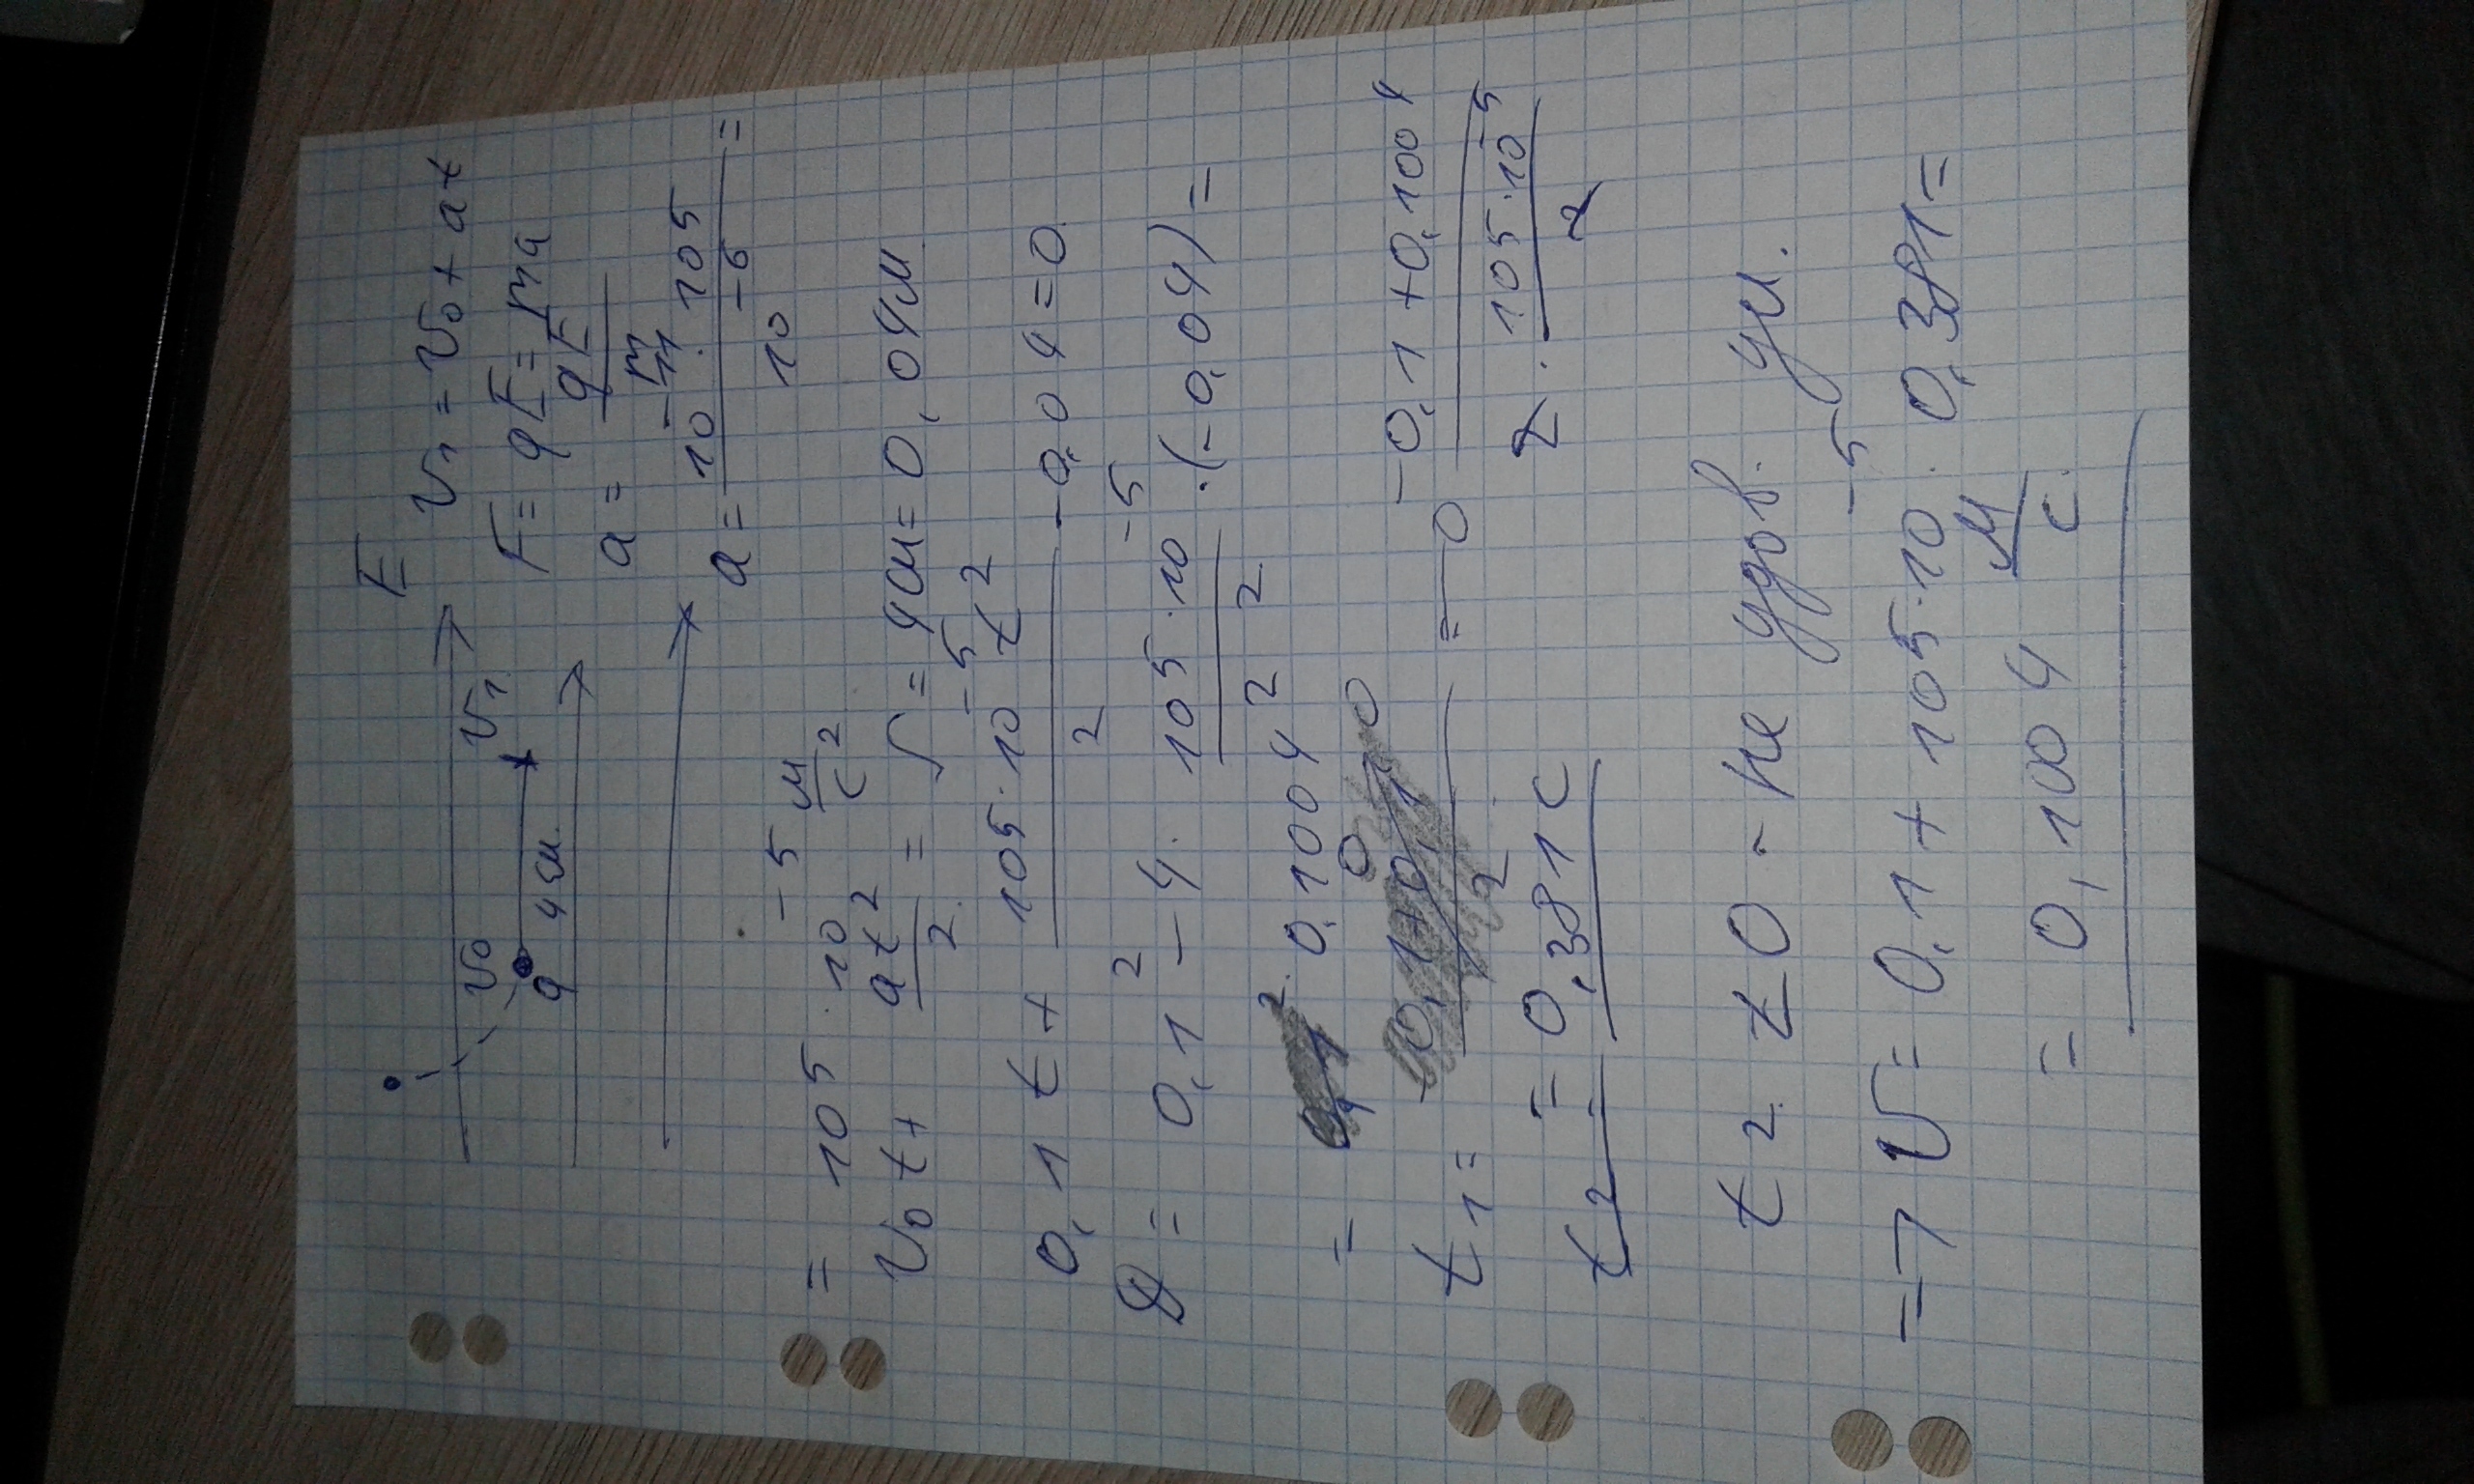 E
v₁ = v₀ + at
v₀ v₁
q 4 см.
F = qE = ma
a = qE/m
a = 10⁻¹¹ · 105 / 10⁻⁶ =
= 105 · 10⁻⁵ м/с²
v₀t + at²/2 = S = 4см = 0,04м
0,1t + 105·10⁻⁵t²/2 - 0,04 = 0.
D = 0,1² - 4 · 105·10⁻⁵/2 · (-0,04) =
= 0,1004²
t₁ = -0,1 + 0,1004 / 2 · 105·10⁻⁵/2
= 0,381 с
t₂
t₂ < 0 - не удов. ус.
=> v = 0,1 + 105·10⁻⁵ · 0,381 =
= 0,1004 м/с.